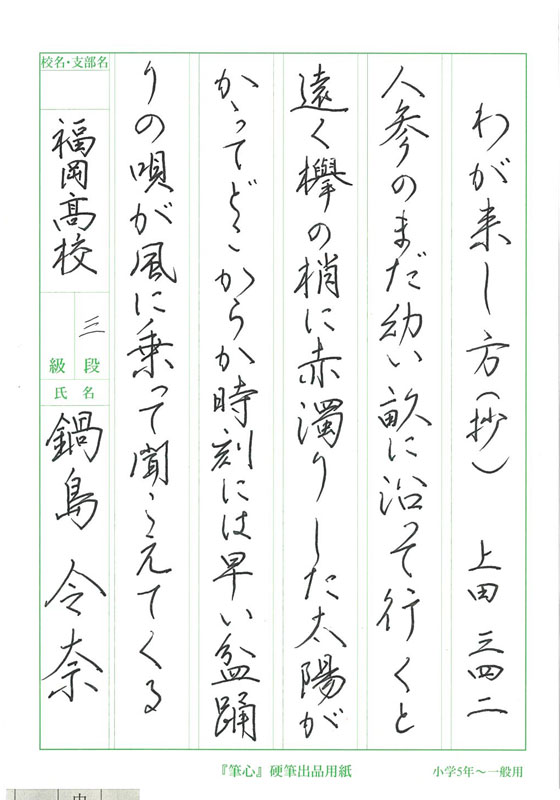 わが来し方（抄）　上田三四二
人参のまだ幼い畝に沿って行くと
遠く欅の梢に赤濁りした太陽が
かかってどこからか時刻には早い盆踊
りの唄が風に乗って聞こえてくる
校名・支部名
福岡高校
三
段
級
氏名
鍋島　令奈
『筆心』硬筆出品用紙
小学5年～一般用